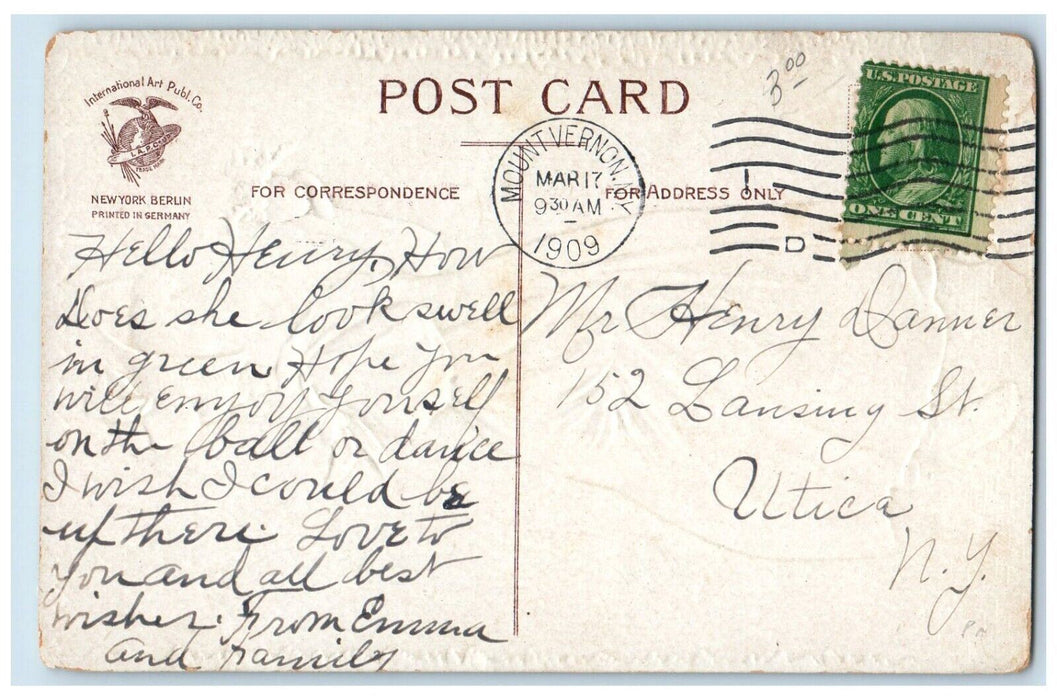 POST CARD
3.00
International Art Publ. Co.
I.A.P.Co.
TRADE
NEW YORK BERLIN
PRINTED IN GERMANY
FOR CORRESPONDENCE
FOR ADDRESS ONLY
MOUNT VERNON, N.Y.
MAR 17
9 30 AM
1909
D
U.S. POSTAGE
ONE CENT
Hello Henry, How
Does she look swell
in green. Hope you
will enjoy yourself
on the ball or dance
I wish I could be
up there. Love to
you and all best
wishes. From Emma
and family
Mr Henry Danner
152 Lansing St.
Utica
N.Y.